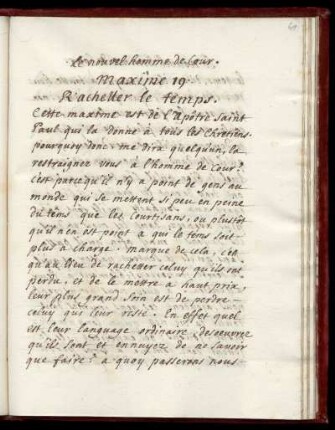 Le nouvel homme de Cour.
Maxime 19
Rachetter le temps.
Cette maxime est de l'Apôtre saint
Paul qui la donne à tous les Chrétiens.
pourquoy donc, me dira quelqu'un, la
restreignez vous à l'homme de Cour?
c'est parcequ'il n'y a point de gens au
monde qui se mettent si peu en peine
du tems que les Courtisans, ou plustôt
qu'il n'en est point à qui le tems soit
plus à charge: marque de cela, c'est
qu'au lieu de racheter celuy qu'ils ont
perdu, et de le mettre à haut prix,
leur plus grand soin est de perdre
celuy qui leur reste. En effet quel
est leur language ordinaire, desoeuvre
qu'ils sont et ennuyez de ne savoir
que faire? à quoy passerons nous-